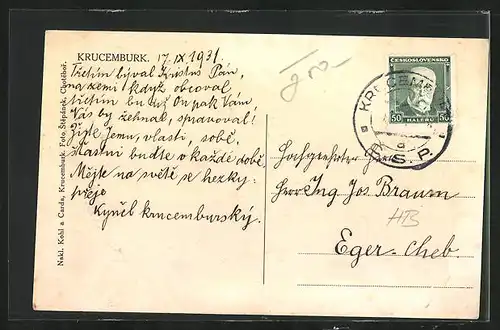 KRUCEMBURK. 17. IX 1931.
Třetím býval Kristus Pán,
na zemi když obcoval,
třetím budiž On pak Vám,
Vás by žehnal, spravoval!
Žijte Jemu, vlasti, sobě,
šťastni buďte v každé době.
Mějte na světě se hezky:
přeje
Kyněb krucemburský.
Nakl. Kohl a Carda, Krucemburk. Foto Štěpánek, Chotěboř.
ČESKOSLOVENSKO
50 HALÉŘŮ 50
KRUCEMB
a
Hochgeehrter
S. P.
Herr Ing. Jos Braum
HB
Eger-Cheb.